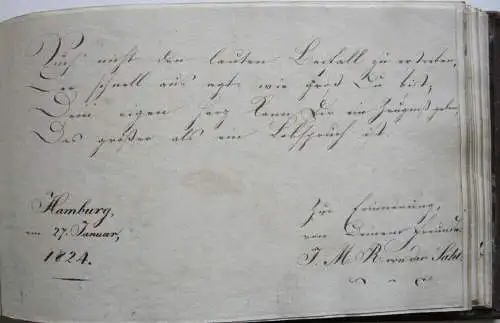 Such' nicht den lauten Beifall zu erstreben,
Der schnell aus sagt wie groß Du bist,
Dein eigen Herz kann Dir ein Zeugniß geben,
Das größer als ein Lobspruch ist.
Hamburg,
am 27. Januar,
1824.
Zur Erinnerung,
von Deinem Freunde
J. M. R. von der